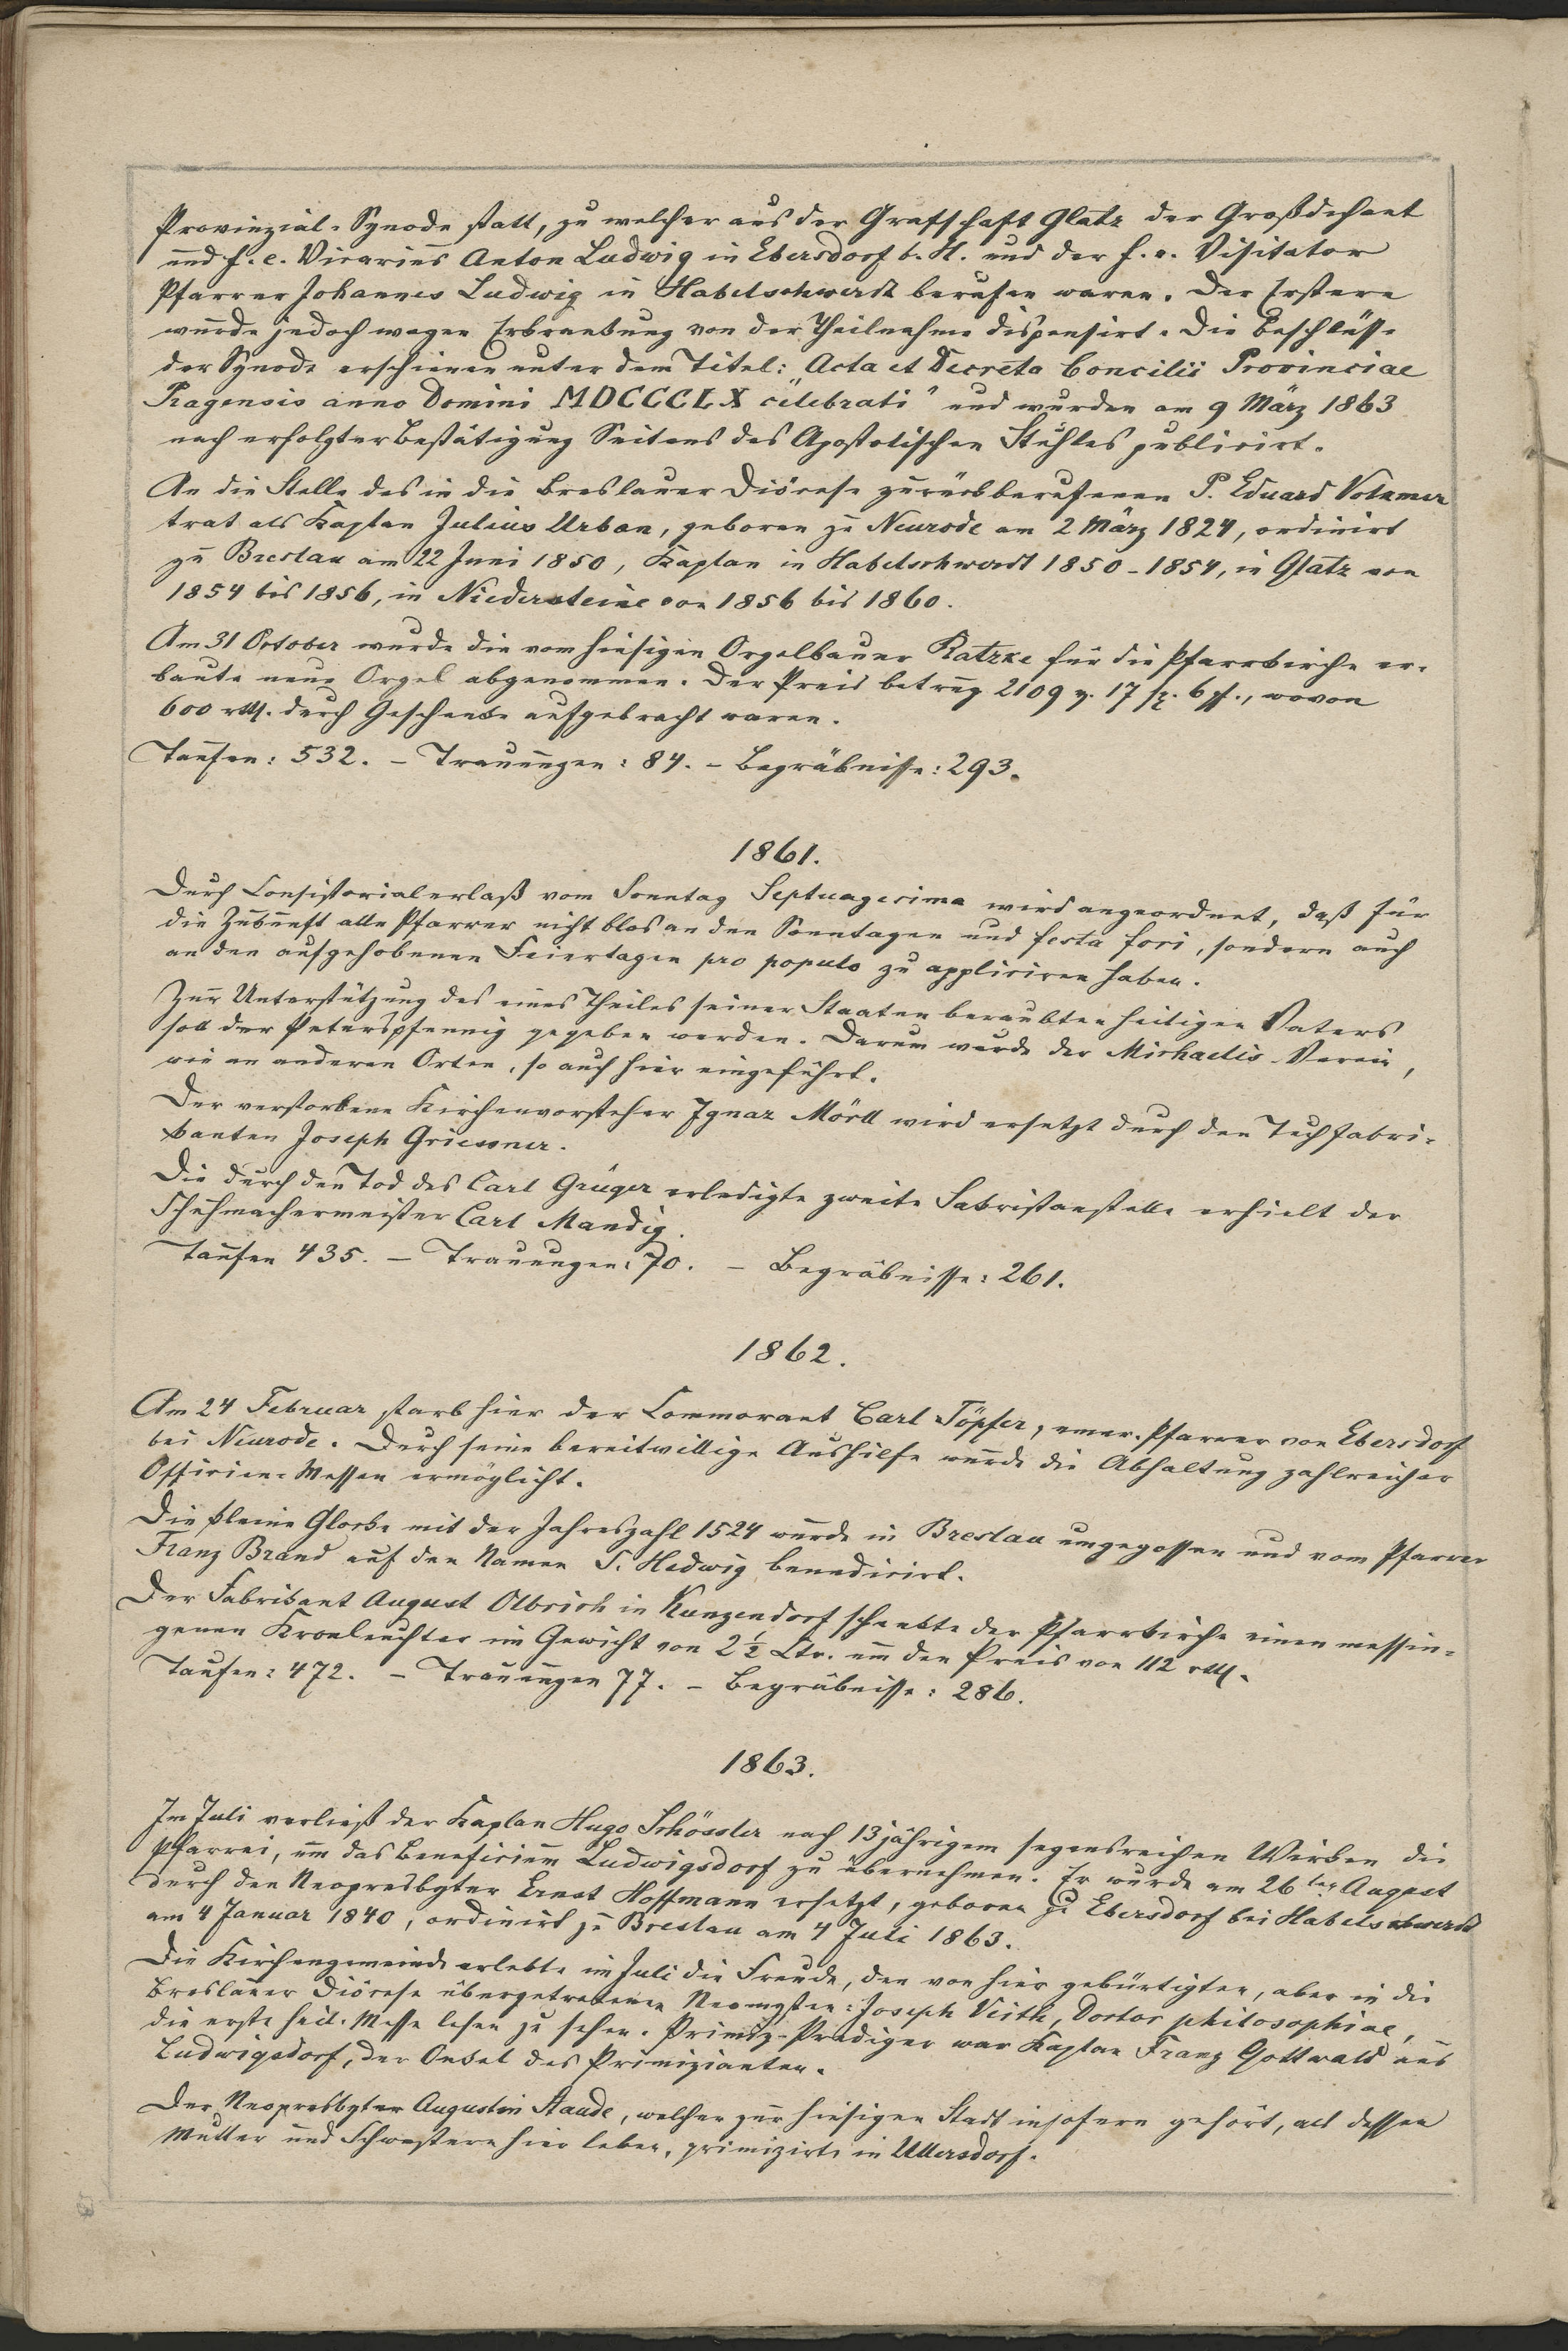 Provinzial-Synode statt, zu welcher aus der Grafschaft Glatz der Großdechant
und f. e. Vicarius Anton Ludwig in Ebersdorf b. H. und der f. e. Visitator
Pfarrer Johannes Ludwig in Habelschwerdt berufen waren. Der Erstere
wurde jedoch wegen Erkrankung von der Theilnahme dispensirt. Die Beschlüsse
der Synode erschienen unter dem Titel: „Acta et Decreta Concilii Provinciae
Pragensis anno Domini MDCCCLX celebrati" und wurden am 9 März 1863
nach erfolgter Bestätigung Seitens des Apostolischen Stuhles publicirt.
An die Stelle des in die Breslauer Diöcese zurückberufenen P. Eduard Volkmer
trat als Kaplan Julius Urban, geboren zu Neurode am 2 März 1824, ordinirt
zu Breslau am 22 Juni 1850, Kaplan in Habelschwerdt 1850-1854, in Glatz von
1854 bis 1856, in Niedersteine von 1856 bis 1860.
Am 31 October wurde die vom hiesigen Orgelbauer Ratzke für die Pfarrkirche er-
baute neue Orgel abgenommen. Der Preis betrug 2109 r. 17 sg. 6 pf., wovon
600 rtl. durch Geschenke aufgebracht waren.
Taufen: 532. – Trauungen: 84. – Begräbnisse: 293.
1861.
Durch Consistorialerlaß vom Sonntag Septuagesima wird angeordnet, daß für
die Zukunft alle Pfarrer nicht blos an den Sonntagen und festa fori, sondern auch
an den aufgehobenen Feiertagen pro populo zu appliciren haben.
Zur Unterstützung des eines Theiles seiner Staaten beraubten heiligen Vaters
soll der Peterspfennig gegeben werden. Darum wurde der Michaelis-Verein,
wie an anderen Orten, so auch hier eingeführt.
Der verstorbene Kirchenvorsteher Ignaz Mörll wird ersetzt durch den Tuchfabri-
kanten Joseph Griessner.
Die durch den Tod des Carl Grüger erledigte zweite Sakristanstelle erhielt der
Schuhmachermeister Carl Mandig.
Taufen 435. – Trauungen: 70. – Begräbnisse: 261.
1862.
Am 24 Februar starb hier der Commorant Carl Töpfer, emer. Pfarrer von Ebersdorf
bei Neurode. Durch seine bereitwillige Aushilfe wurde die Abhaltung zahlreicher
Officien-Messen ermöglicht.
Die kleine Glocke mit der Jahreszahl 1524 wurde in Breslau umgegossen und vom Pfarrer
Franz Brand auf den Namen S. Hedwig benedicirt.
Der Fabrikant August Olbrich in Kunzendorf schenkte der Pfarrkirche einen messin-
genen Kronleuchter im Gewicht von 2½ Ctr. um den Preis von 112 rtl.
Taufen: 472. – Trauungen 77. – Begräbnisse: 286.
1863.
Im Juli verließ der Kaplan Hugo Schössler nach 13jährigem segensreichen Wirken die
Pfarrei, um das Beneficium Ludwigsdorf zu übernehmen. Er wurde am 26 ten August
durch den Neopresbyter Ernst Hoffmann ersetzt, geboren zu Ebersdorf bei Habelschwerdt
am 4 Januar 1840, ordinirt zu Breslau am 4 Juli 1863.
Die Kirchengemeinde erlebte im Juli die Freude, den von hier gebürtigten, aber in die
Breslauer Diöcese übergetretenen Neomysten: Joseph Veith, Doctor philosophiae,
die erste heil. Messe lesen zu sehen. Primiz-Prediger war Kaplan Franz Gottwald aus
Ludwigsdorf, der Onkel des Primizianten.
Der Neopresbyter Augustin Staude, welcher zur hiesigen Stadt insofern gehört, als dessen
Mutter und Schwestern hier leben, primizirte in Ullersdorf.